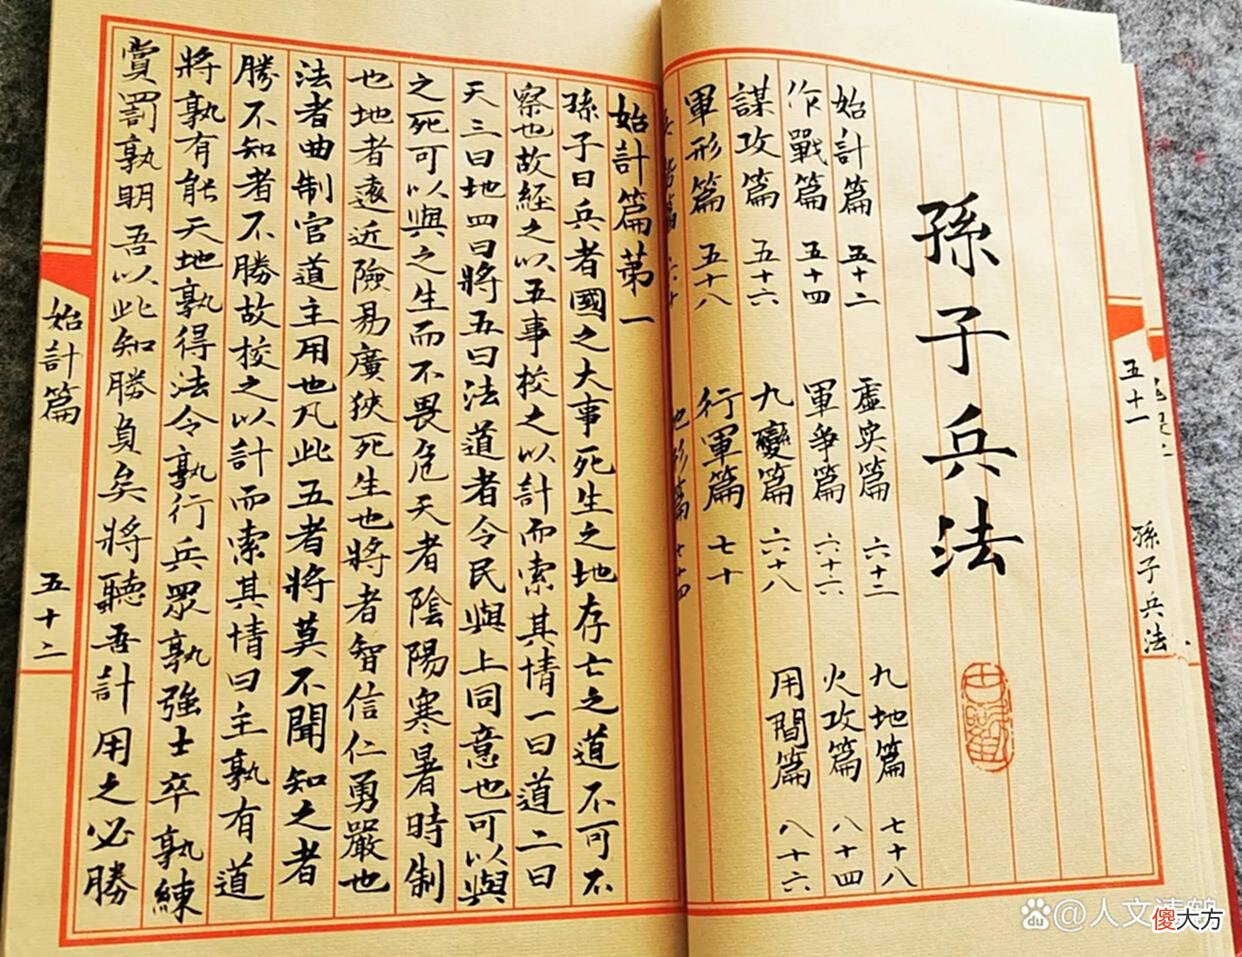 孫子兵法
始計篇 五十二
作戰篇 五十四
謀攻篇 五十六
軍形篇 五十八
虛実篇 六十二
軍爭篇 六十六
九變篇 六十八
行軍篇 七十
地形篇 七十四
九地篇 七十八
火攻篇 八十四
用間篇 八十六
五十一
孫子兵法
始計篇苐一
孫子曰兵者國之大事死生之地存亡之道不可不
察也故経之以五事校之以計而索其情一曰道二曰
天三曰地四曰將五曰法道者令民與上同意也可以與
之死可以與之生而不畏危天者陰陽寒暑時制
也地者遠近險易廣狹死生也將者智信仁勇嚴也
法者曲制官道主用也凡此五者將莫不聞知之者
勝不知者不勝故校之以計而索其情曰主孰有道
將孰有能天地孰得法令孰行兵眾孰強士卒孰練
賞罰孰明吾以此知勝負矣將聽吾計用之必勝
始計篇
五十二
@人文清
傻大方